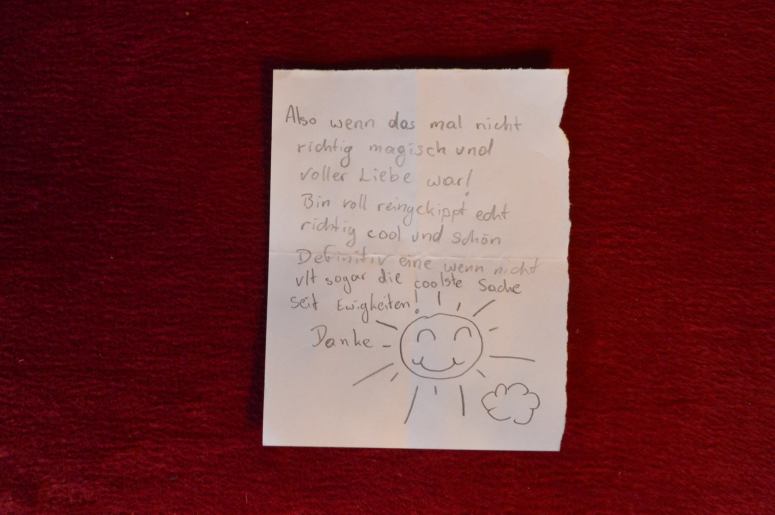 Also wenn das mal nicht
richtig magisch und
voller Liebe war!
Bin voll reingekippt echt
richtig cool und schön
Definitiv eine wenn nicht
vlt sogar die coolste Sache
seit Ewigkeiten!
Danke -